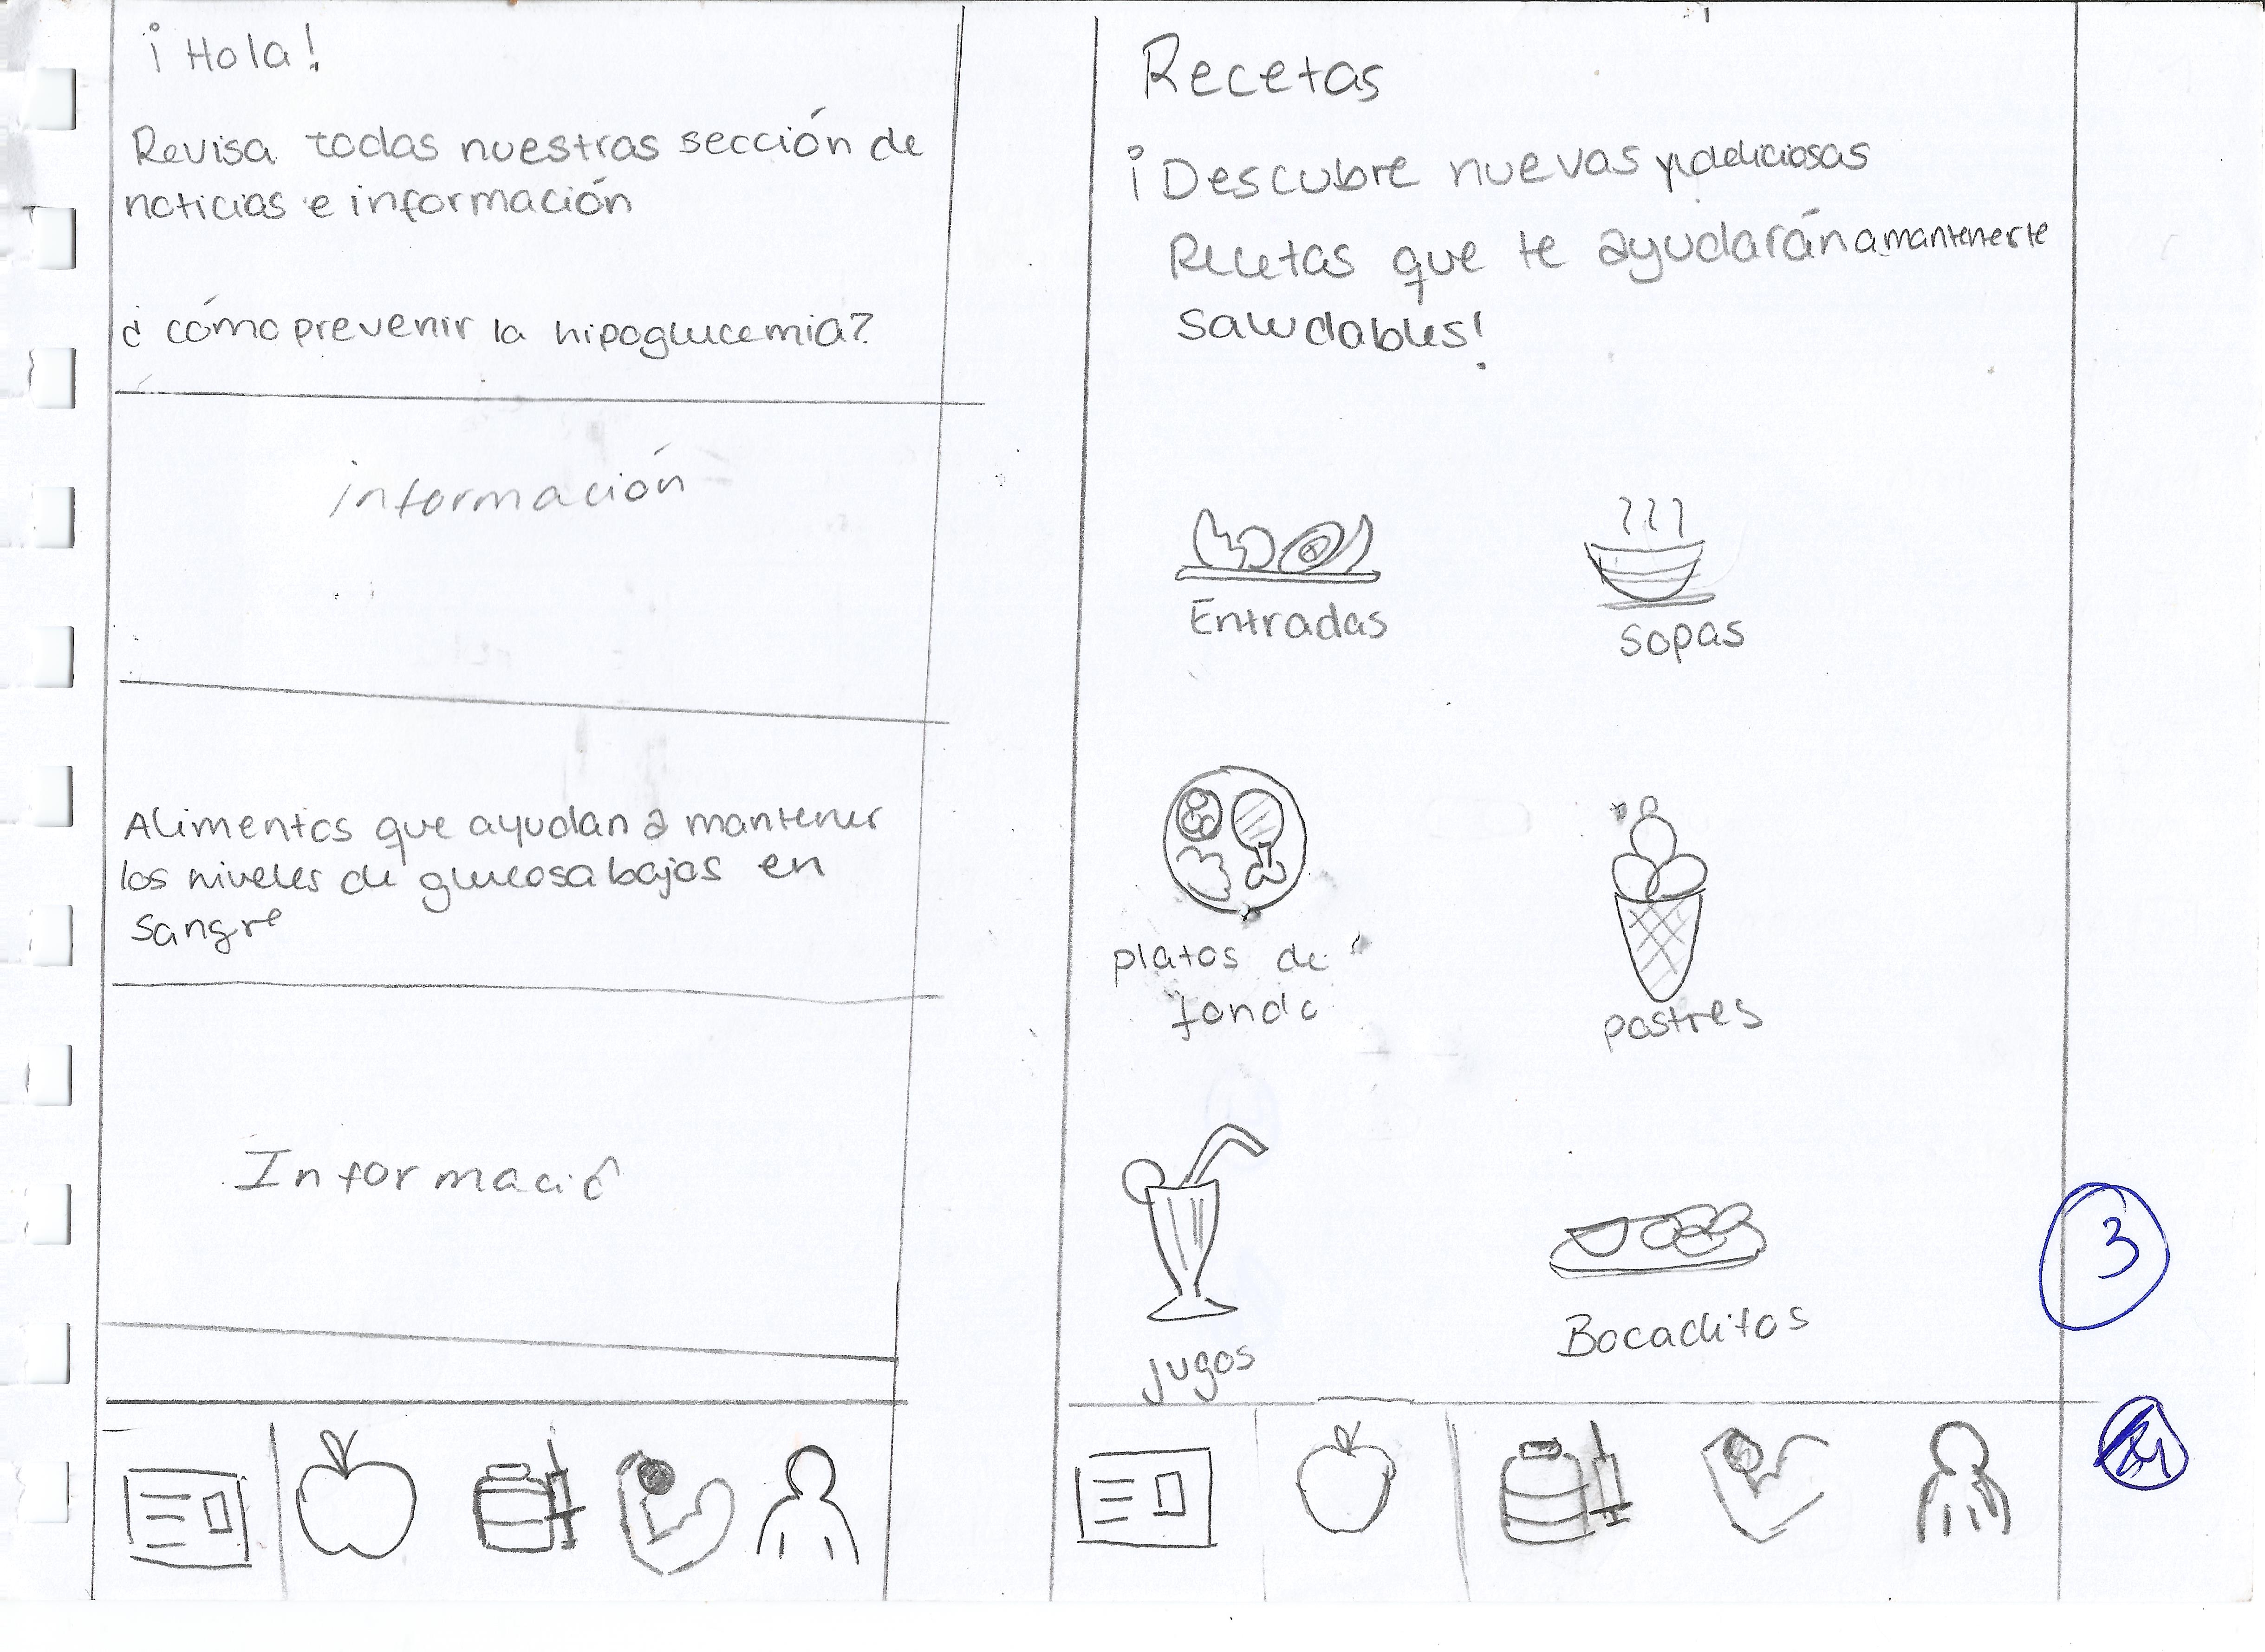 ¡Hola!
Revisa todas nuestras sección de
noticias e información
¿cómo prevenir la hipoglucemia?
información
Alimentos que ayudan a mantener
los niveles de glucosa bajos en
sangre
Informació
Recetas
¡Descubre nuevas y deliciosas
Recetas que te ayudarán a mantenerte
saludables!
Entradas
Sopas
platos de
fondo
postres
jugos
Bocaditos
3